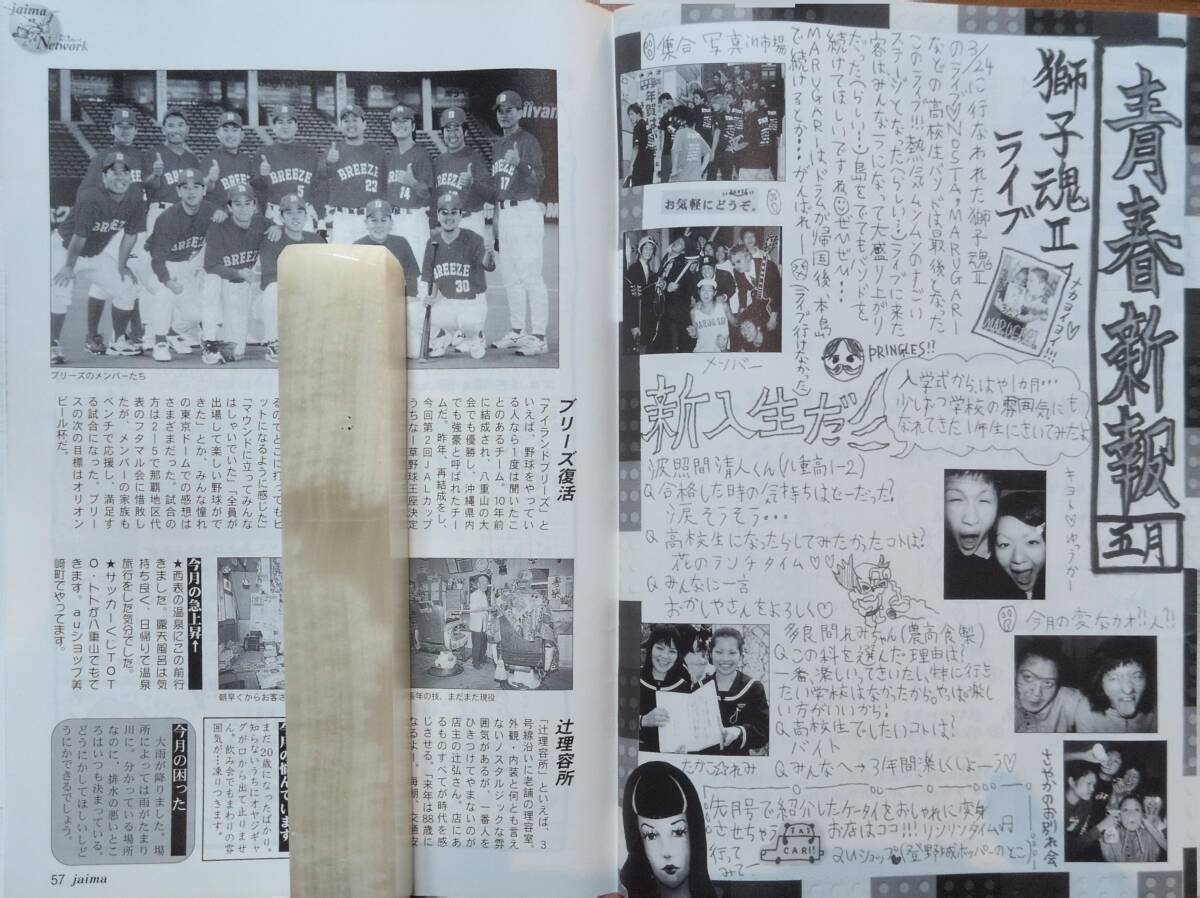 jaima
Network
ブリーズのメンバーたち
ブリーズ復活
「アイランドブリーズ」と
いえば、野球をやってい
る人なら1度は聞いたこ
とのあるチーム。10年前
に結成され、八重山の大
会でも優勝し、沖縄県内
でも強豪と呼ばれたチー
ムだ。昨年、再結成をし、
今回第2回JALカップ
うちなー草野球王座決定
るのでどこに打ってもヒ
ットになるように感じた」
「マウンドに立ってみんな
はしゃいでいた」「全員が
出場して楽しい野球がで
きた」とか、みんな憧れ
の東京ドームでの感想は
さまざまだった。試合の
方は2-5で那覇地区代
表のフタマル会に惜敗し
たが、メンバーの家族も
ベンチで応援し、満足す
る試合になった。ブリー
ズの次の目標はオリオン
ビール杯だ。
今月の急上昇↑
★西表の温泉にこの前行
きました。露天風呂は気
持ち良く、日帰りで温泉
旅行をした気分でした。
★サッカーくじTOT
O・トトが八重山でもで
きます。auショップ美
崎町でやってます。
朝早くからお客さ
年の技、まだまだ現役
辻理容所
「辻理容所」といえば、3
号線沿いに老舗の理容室。
外観・内装と何とも言え
ないノスタルジックな雰
囲気があるが、一番人を
ひきつけてやまないのが
店主の辻弘さん。店にあ
るものすべてが時代を感
じさせる。「来年は88歳に
なるよー。毎朝、交通安
今月の悩んでいます
まだ20歳になったばかり。
知らないうちにオヤジギャ
グが口から出て止りませ
ん。飲み会でもまわりの雰
囲気が…凍りつきます。
今月の困った
大雨が降りました。場
所によっては雨がたまり
川に。分かっている場所
なのに、排水の悪いとこ
ろはいつも決まっている。
どうにかしてほしいしど
うにかできるでしょう。
57 jaima
青春新報
五月
獅子魂II
ライブ
メカヨイヨイ!!!
3/24に行なわれた獅子魂II
のライブ♡NDSTA,MARUGARI
などの高校生バンドは最後となった
このライブ!!!熱気ムンムンのナごい
ステージとなった(らしい…)ライブに来た
客はみんなラになって大盛り上がり
だった(らしい…)島をでてもバンドを
続けてほしいですね☺ぜひぜひ…
MARUGARIはドラムが帰国後、本島
で続けるとか…がんばれー!
(ライブ行けなかった)
集合写真in市場
お気軽にどうぞ。
メンバー
PRINGLES!!
新入生だ!!
入学式から、はや1カ月…
少しずつ学校の雰囲気にも
なれてきた1年生にきいてみたよ
波照間清人くん(八重高1-2)
Q合格した時の気持ちはどーだった?
涙そうそう…
Q高校生になったらしてみたかったコトは?
花のランチタイム♡♡
Qみんなに一言
おかしやさんをよろしく♡
キヨト♡ゆうかー
多良間れみちゃん(農高食製)
Qこの科を選んだ理由は?
一番、楽しいってきいたし、特に行き
たい学校はなかったから。やっぱ楽し
い方がいいから!
Q高校生でしたいコトは?
バイト
Qみんなへ→3年間楽しくしよーう♡
たかこ&れみ
今月の変なカオ!!人?!
さやかのお別れ会
先月号で紹介したケータイをおしゃれに変身
させちゃうお店はココ!!!リンリンタイム♫
行ってみて
TAXI
CAR!!
2Uショップ(登野城ホッパーのとこ)